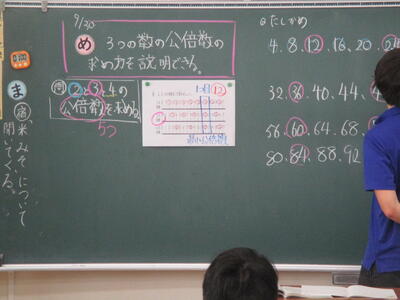 9/30
め 3つの数の公倍数の
求め方を説明できる。
問 2と3と4の
公倍数を求める。
5つ
1つ目 12
最小公倍数
たしかめ
4.8.12.16.20.24
32.36.40.44.4
56.60.64.68.
80.84.88.92
ま
米、みそについて
聞いている。